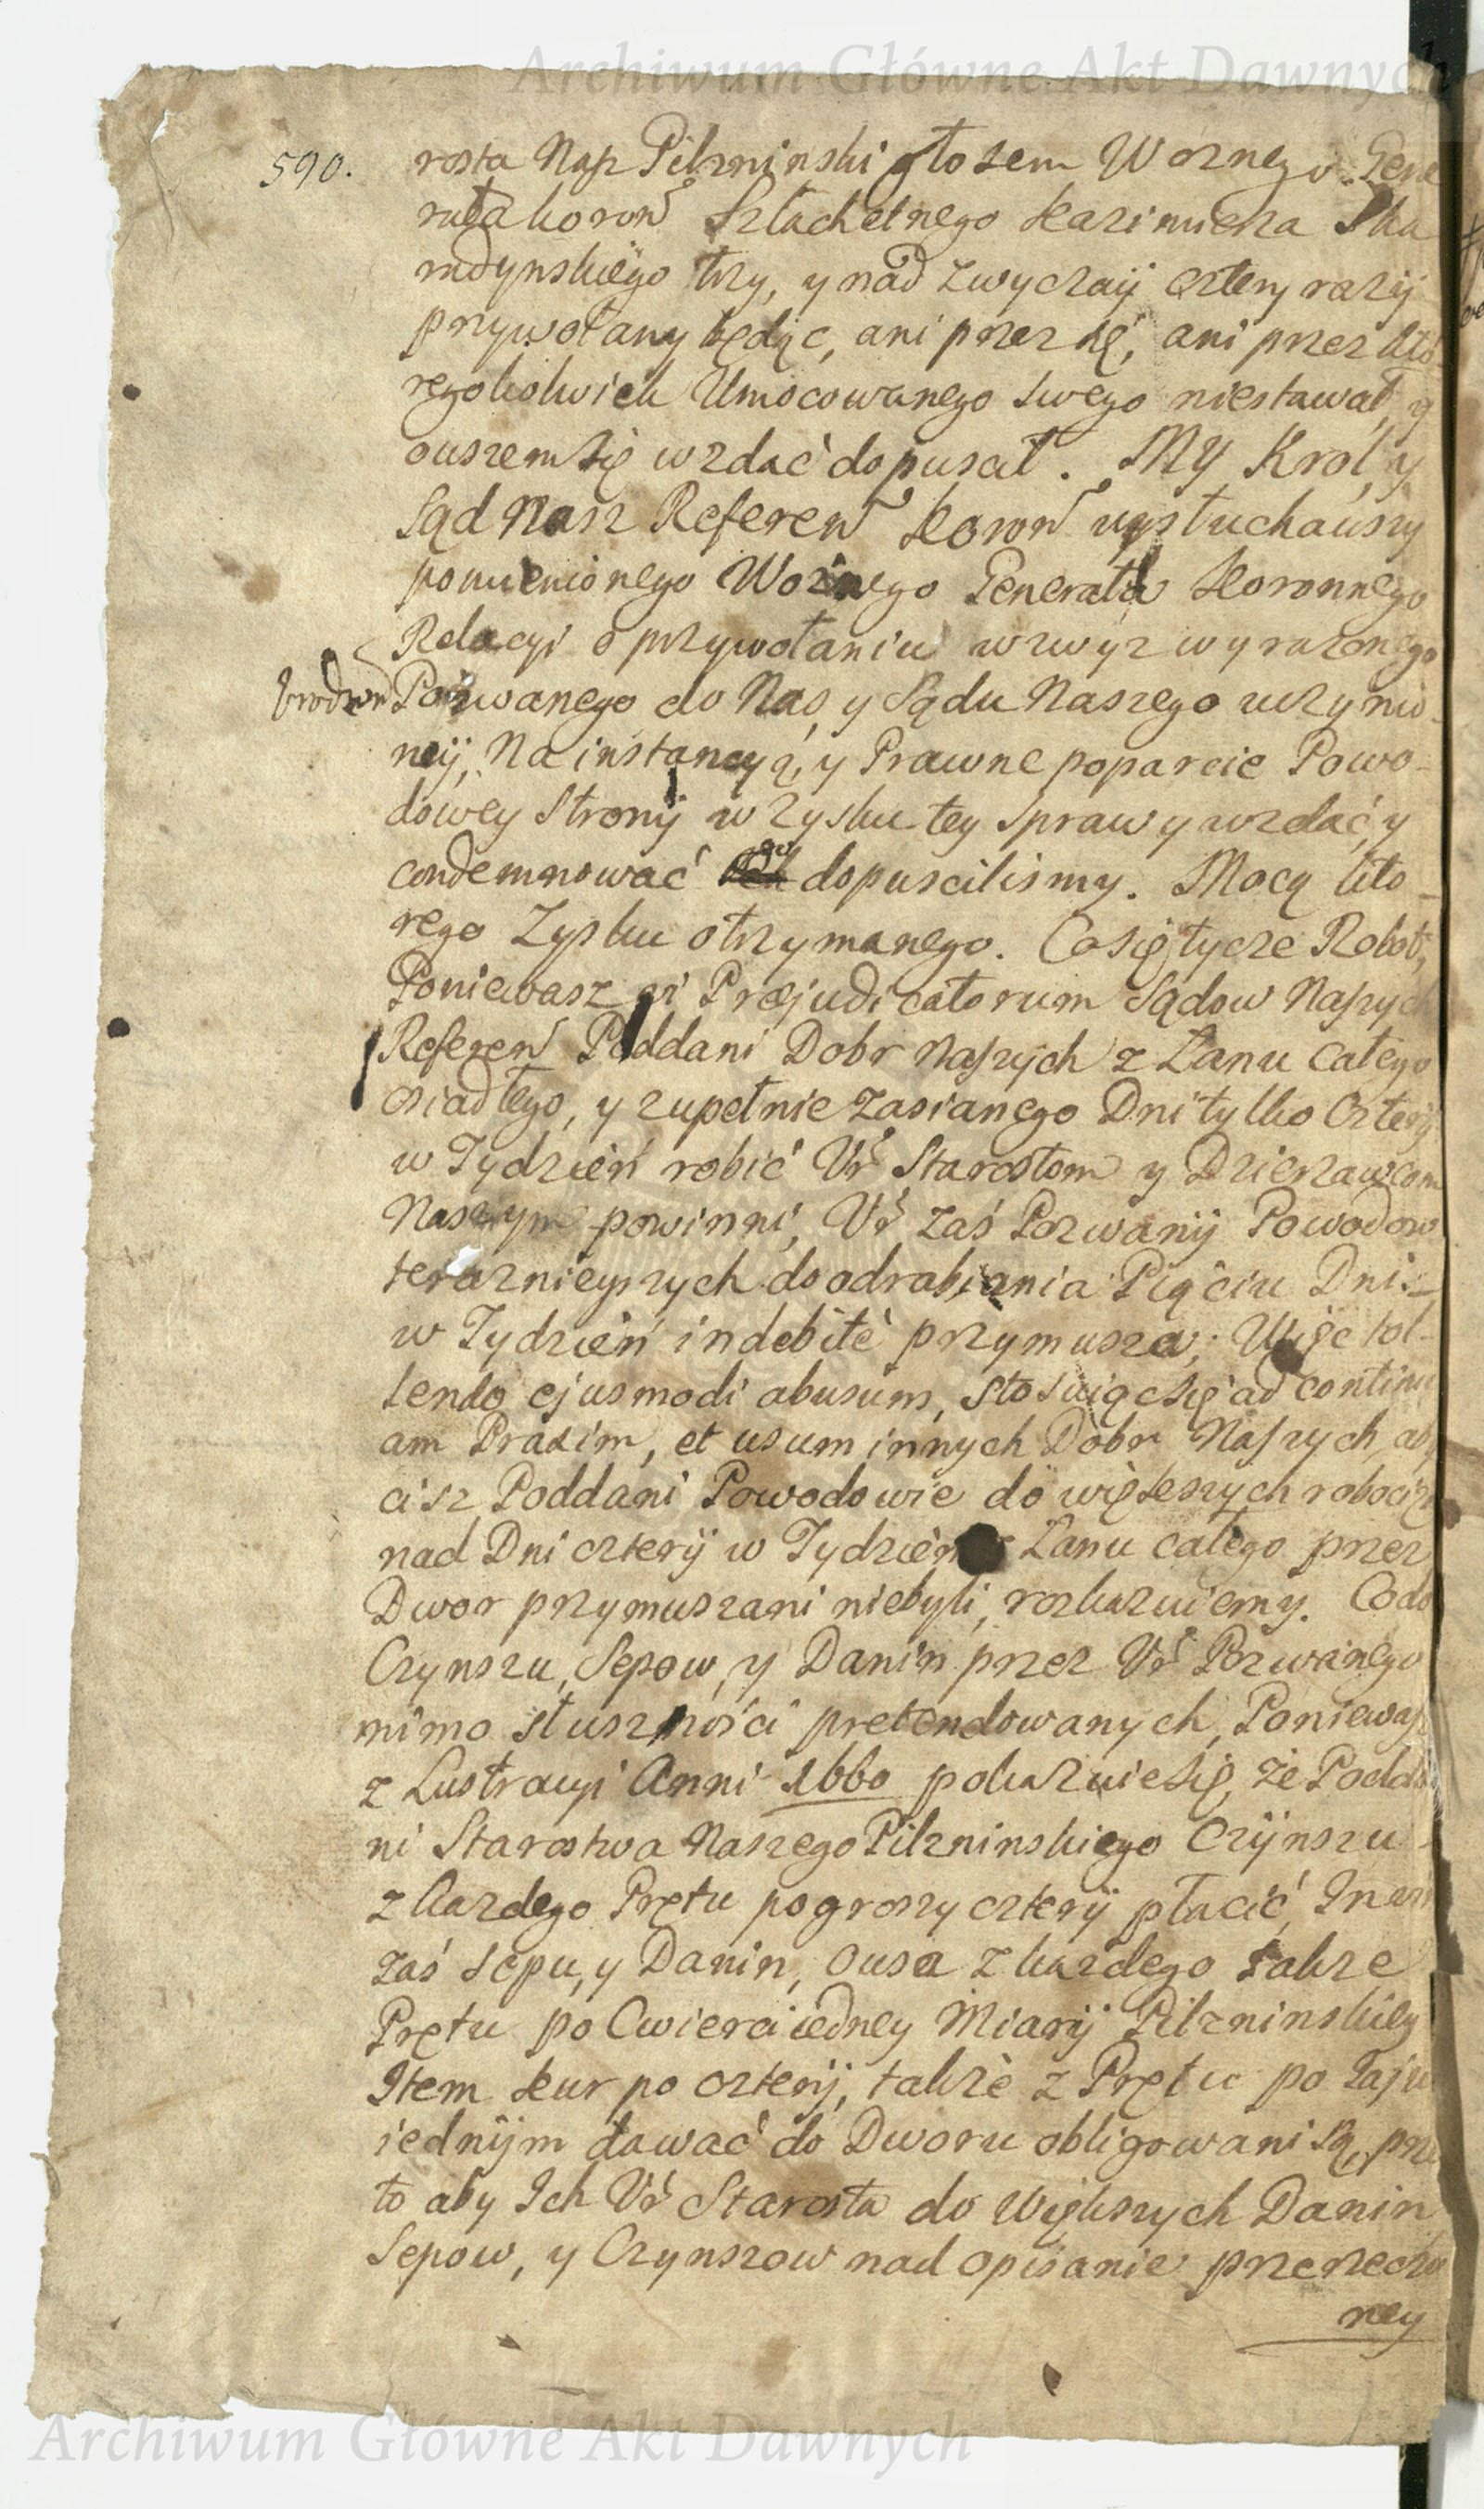 Archiwum Główne Akt Dawnych
590.
rosta Nasz Pilzninski głosem Woznego Gene
rała koron Szlachetnego Kazimierza Ska
radynskiego trzy, y nad zwyczaij cztery razij
przywołany będąc, ani przez się, ani przez któ
regokolwiek Umocowanego swego niestawał, y
owszem się wzdać dopuscił. MY Krol, y
Sąd Nasz Referen Koron wysłuchawszy
pomienionego Woznego Generała Koronnego
Relacyi o przywołaniu wzwyz wyrazonego
Urodzon Pozwanego do Nas, y Sądu Naszego uczynio
neij, Na instancyą, y Prawne poparcie Powo-
dowey Stronij w Zysku tey Sprawy wzdać, y
condemnować go dopuscilismy. Mocą kto-
rego Zysku otrzymanego. Co się tycze Robot,
Poniewasz vi Præjudicatorum Sądow Naszych
Referen Poddani Dobr Naszych z Łanu całego
osiadłego, y zupełnie zasianego Dni tylko czterij
w Tydzień robić Ur Starostom y Dzierzawcom
Naszym powinni, Ur zaś Pozwanij Powodow
teraznieyszych do odrabiania Piąciu Dni
w Tydzień indebitè przymusza; Więc tol-
lendo ejusmodi abusum, stosuiąc się ad continu
am Praxim, et usum innych Dobr Naszych, aby
cisz Poddani Powodowie do większych robocizn
nad Dni czterij w Tydzień z Łanu całego przez
Dwor przymuszani niebyli, rozkazuiemy. Co do
Czynszu, Sepow, y Danin przez Ur Pozwanego
mimo słuszności pretendowanych, Poniewasz
z Lustracyi Anni 1660 pokazuie się, że Podda
ni Starostwa Naszego Pilzninskiego Czijnszu
z kazdego Prętu po groszy czterij płacić,
zaś sepu, y Danin, owsa z kazdego takze
Prętu po Cwierci iedney Miarij Pilzninskiey
Item kur po czterij, takżè z Prętu po Jaju
iednijm dawać do Dworu obligowani są, prze
to aby Ich Ur Starosta do większych Danin
Sepow, y Czynszow nad opisanie przerzeczo
ney
Archiwum Główne Akt Dawnych